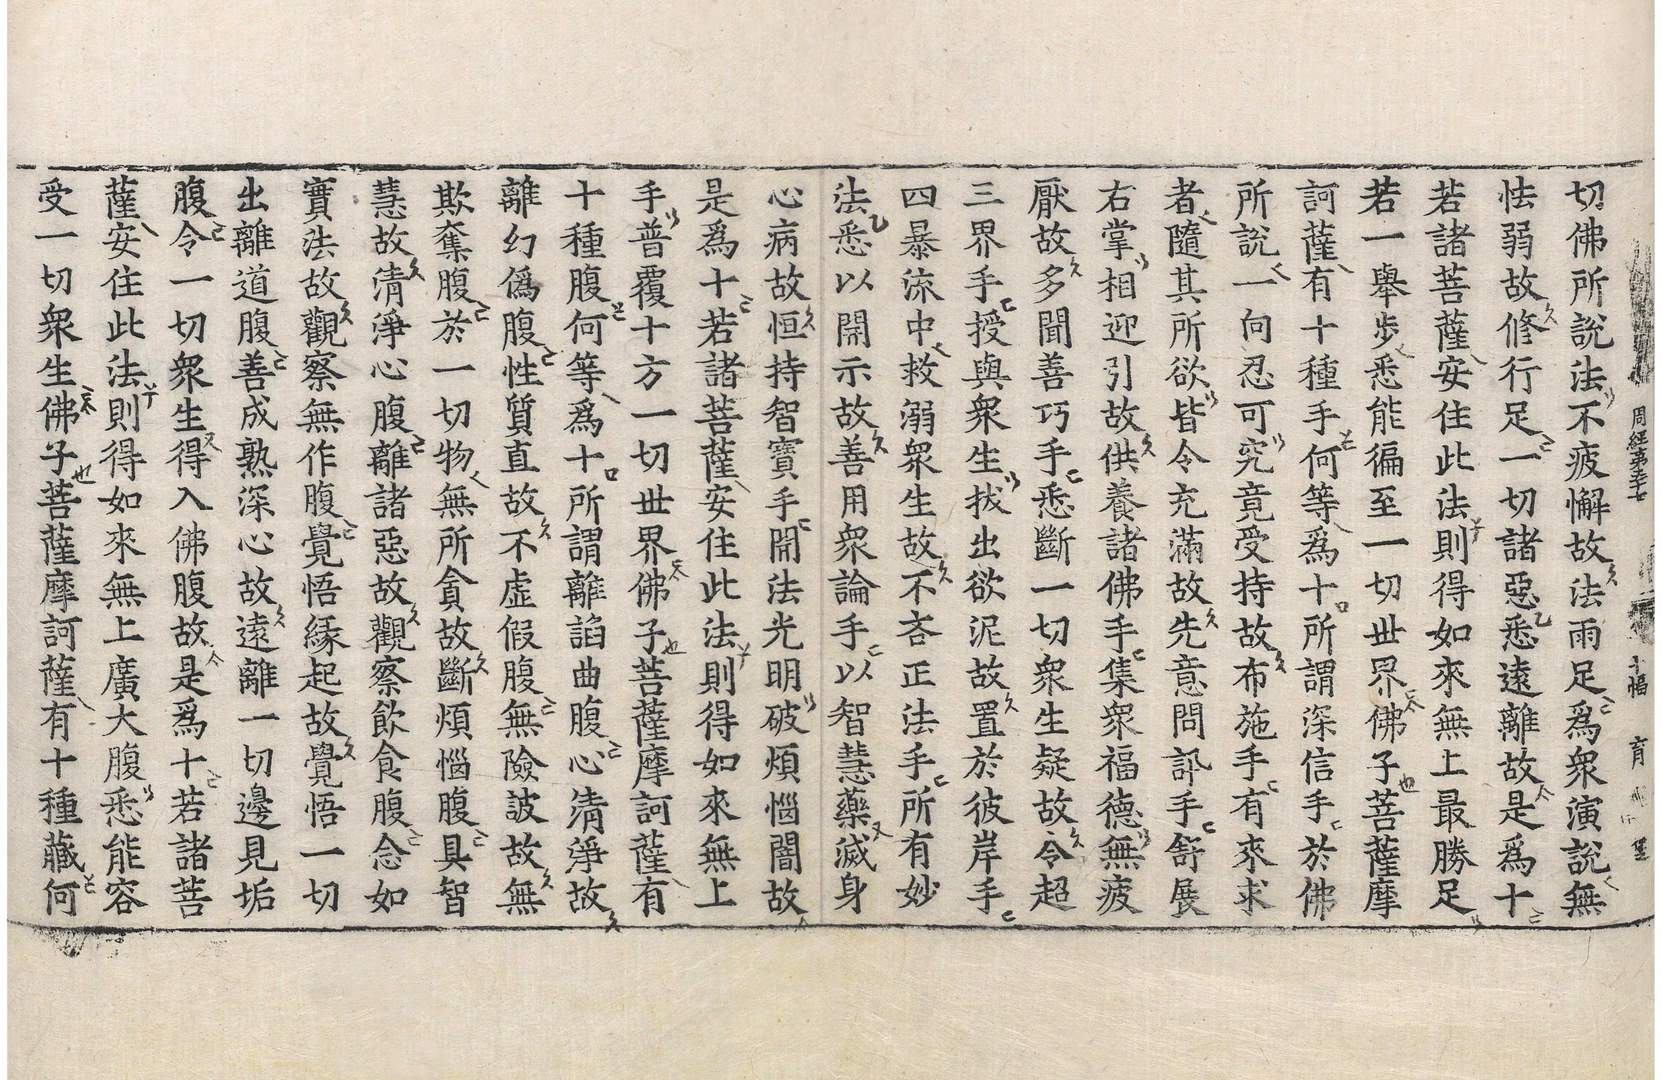 周經第五十七 十幅 育
切佛所說法不疲懈故法雨足爲衆演說無
怯弱故修行足一切諸惡悉遠離故是爲十
若諸菩薩安住此法則得如來無上最勝足
若一舉步悉能徧至一切世界佛子菩薩摩
訶薩有十種手何等爲十所謂深信手於佛
所說一向忍可究竟受持故布施手有來求
者隨其所欲皆令充滿故先意問訊手舒展
右掌相迎引故供養諸佛手集衆福德無疲
厭故多聞善巧手悉斷一切衆生疑故令超
三界手授與衆生拔出欲泥故置於彼岸手
四暴流中救溺衆生故不吝正法手所有妙
法悉以開示故善用衆論手以智慧藥滅身
心病故恒持智寶手開法光明破煩惱闇故
是爲十若諸菩薩安住此法則得如來無上
手普覆十方一切世界佛子菩薩摩訶薩有
十種腹何等爲十所謂離諂曲腹心清淨故
離幻僞腹性質直故不虛假腹無險詖故無
欺奪腹於一切物無所貪故斷煩惱腹具智
慧故清淨心腹離諸惡故觀察飲食腹念如
實法故觀察無作腹覺悟緣起故覺悟一切
出離道腹善成熟深心故遠離一切邊見垢
腹令一切衆生得入佛腹故是爲十若諸菩
薩安住此法則得如來無上廣大腹悉能容
受一切衆生佛子菩薩摩訶薩有十種藏何